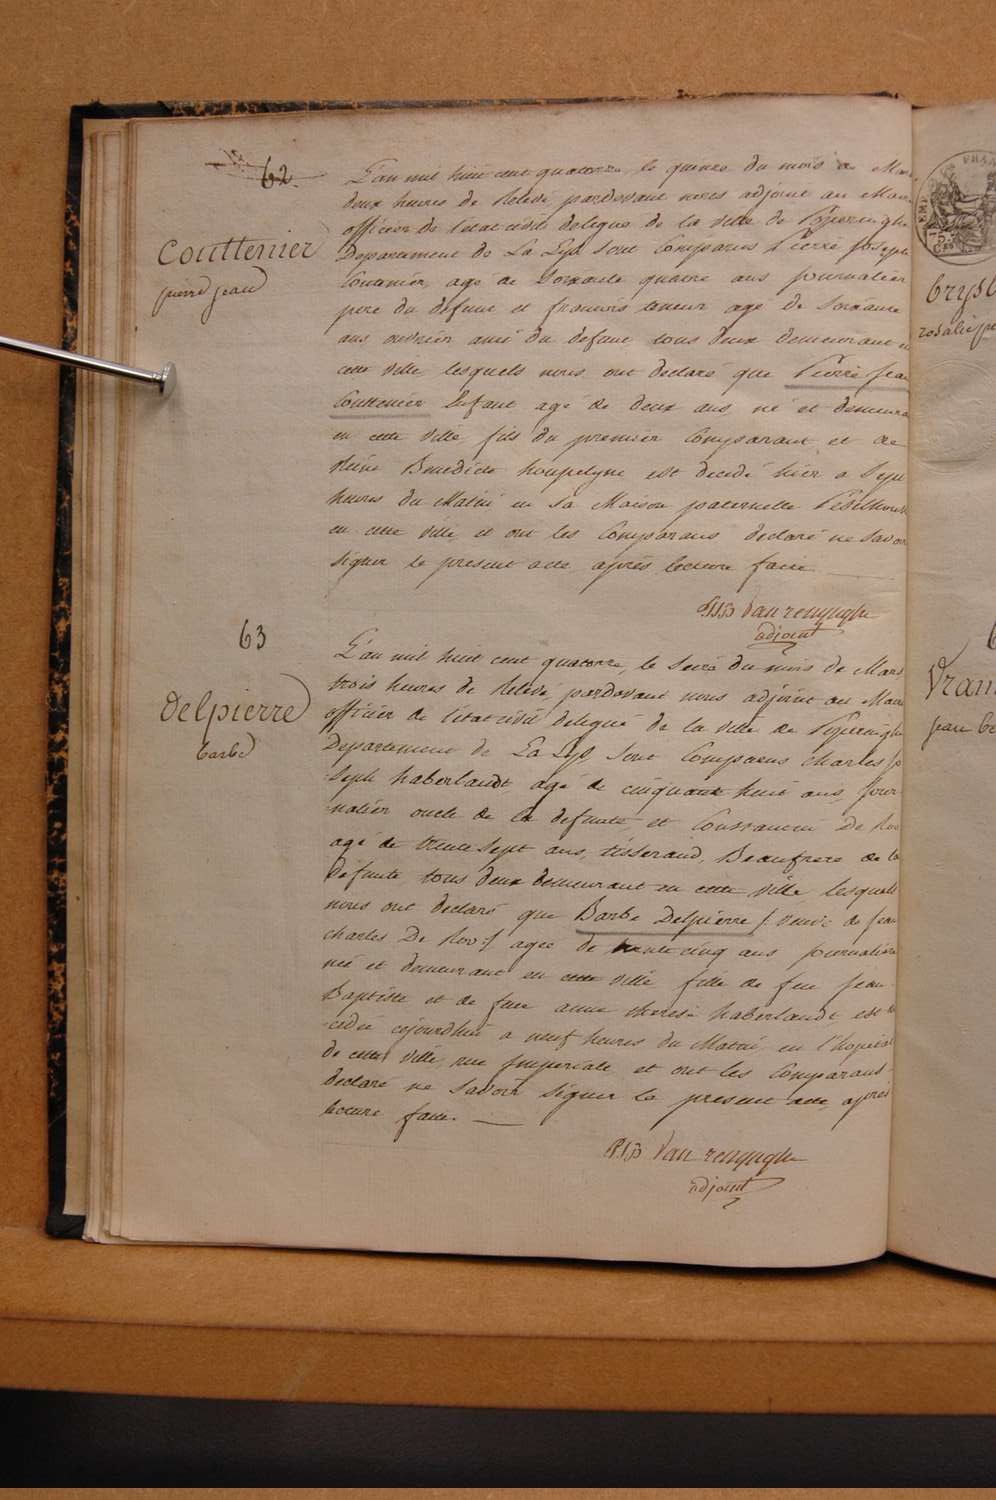 62
Couttenier
pierre jean
L'an mil huit cent quatorze, le quinze du mois de Mars
deux heures de Relevé pardevant nous adjoint au Maire
officier de l'état civil delegué de la ville de Poperinghe
Departement de La Lys sont Comparus Pierre Joseph
Couttenier, agé de Soixante quatre ans journalier
pere du défunt et francois agé de Soixante
ans ouvrier ami du defunt tous deux demeurant en
cette ville lesquels nous ont declaré que Pierre Jean
Couttenier Enfant agé de deux ans né et demeurant
en cette ville fils du premier Comparant et de
Reine Benedicte houpelyne est decédé hier a Sept
heures du Matin en Sa Maison paternelle
en cette ville et ont les Comparans declaré ne Savoir
signer le present acte après lecture faite
PJB Van renynghe
adjoint
63
Delpierre
barbe
L'an mil huit cent quatorze, le Seize du mois de Mars
trois heures de Relevé, pardevant nous adjoint au Maire
officier de l'état civil delegué de la ville de Poperinghe
Departement de La Lys sont Comparus Charles jo
seph haberlandt, agé de cinquante huit ans, jour
nalier oncle de la defunte, et Constantin De Roo
agé de trente sept ans, tisserand, Beaufrere de la
défunte tous deux demeurant en cette ville, lesquels
nous ont declaré que Barbe Delpierre /: veuve de Jean
charles De Roo :/ agée de trente cinq ans journaliere
née et demeurant en cette ville fille de feu Jean
Baptiste et de feue anne therese haberlandt, est de
cédée cejourdhui a neuf heures du Matin, en l'hopital
de cette ville, rue Imperiale et ont les Comparans
declaré ne Savoir Signer le present acte après
lecture faite.
PJB Van renynghe
adjoint
rosalie
Vram
jean